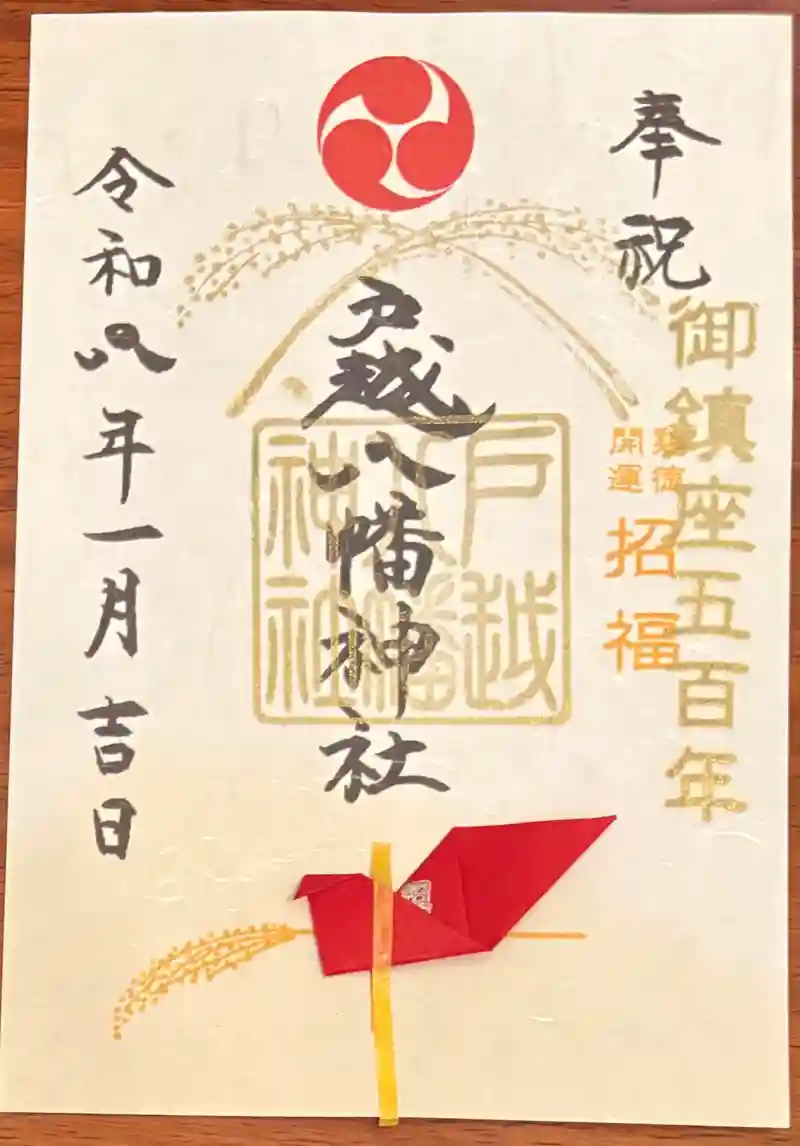 奉祝
御鎮座五百年
鶏徳
開運
招福
戸越八幡神社
戸越
八幡
神社
令和八年一月吉日